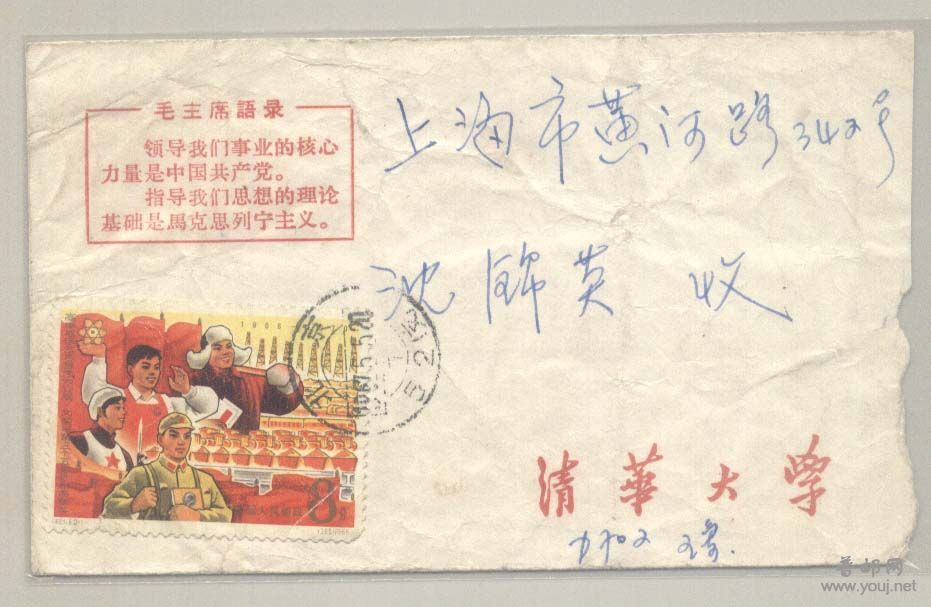 毛主席語录
领导我们事业的核心
力量是中国共产党。
指导我们思想的理论
基础是馬克思列宁主义。
上海市黄河路342号
沈锦英 收
1966
8
清華大学
普邮网
www.youj.net